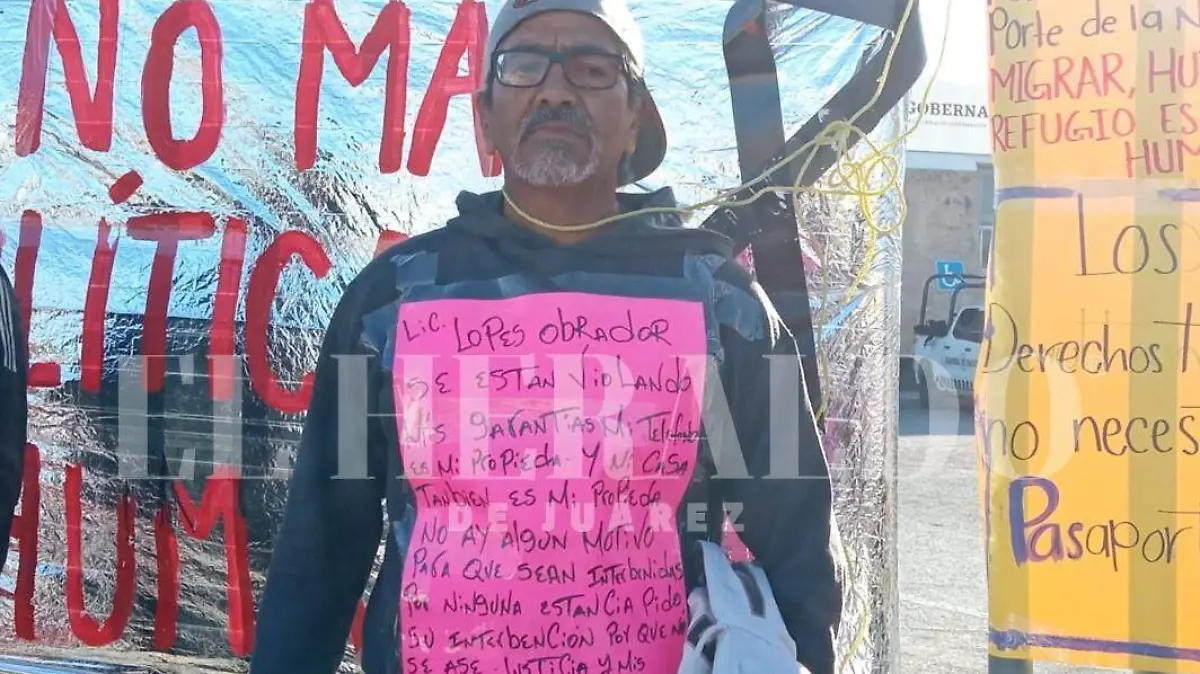 NO MA
LÍTIC
HUM
Lic. LOPES OBRADOR
SE ESTAN VIOLANDO
MIS GARANTIAS MI TELEFONO
ES MI PROPIEDA Y MI CASA
TAMBIEN ES MI PROPIEDA
NO AY ALGUN MOTIVO
PARA QUE SEAN INTERBENIDAS
POR NINGUNA ESTANCIA PIDO
SU INTERBENCIÓN POR QUE NO
SE ASE JUSTICIA Y MIS
GOBERNA
Porte de la N
MIGRAR, HU
REFUGIO ES
HUM
Los
Derechos
no neces
Pasaport
EL HERALDO
DE JUÁREZ